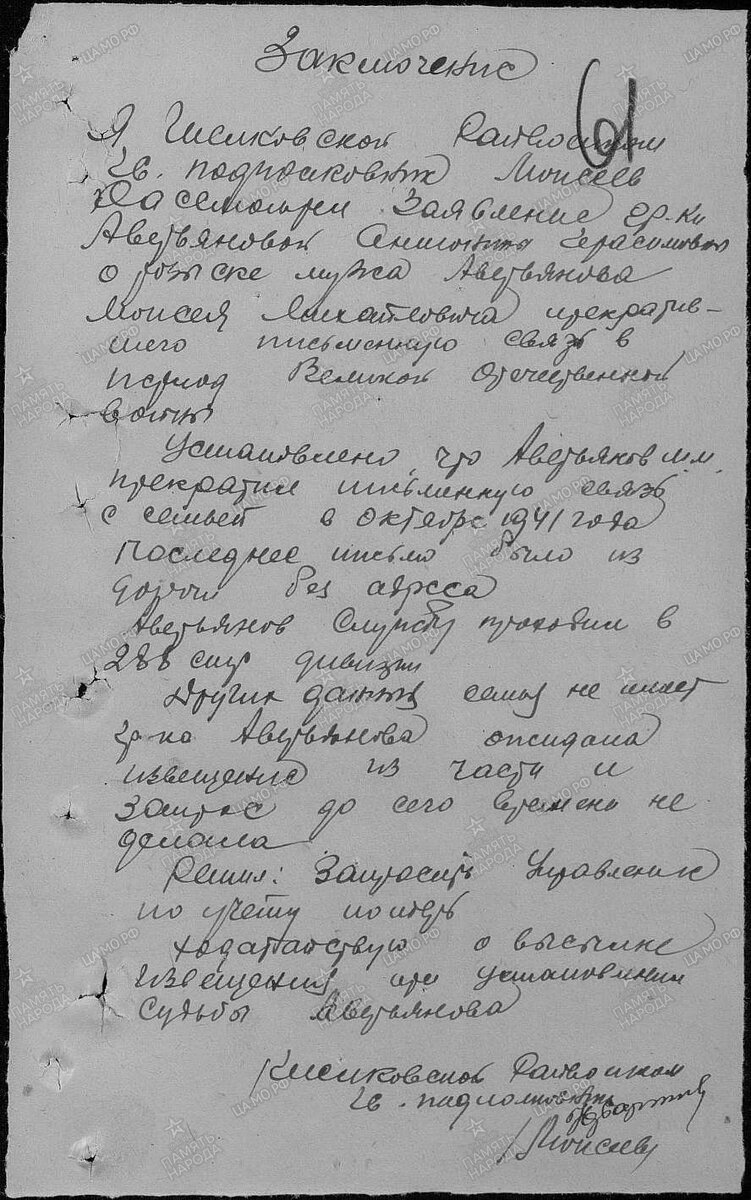 Заключение
61
Я Кисиковской Райвоенком
Гв. подполковник Моисеев
Рассмотрел Заявление гр-ки
Аветьяновой Герасимовны
о розыске мужа Аветьянова
Моисея Михайловича прекратив-
шего письменную связь в
период Великой Отечественной
войны
Установлено, что Аветьянов М.М.
прекратил письменную связь
с семьей в октябре 1941 года
последнее письмо было из
дороги без адреса
Аветьянов службу проходил в
288 дивизии
Других данных семья не имеет
гр-ка Аветьянова ожидала
извещение из части и
запрос до сего времени не
делала
Решил: Запросить Управление
по учету потерь
ходатайствую о высылке
извещения при установлении
судьбы Аветьянова
Райвоенком
Гв. подполковник
/Моисеев/